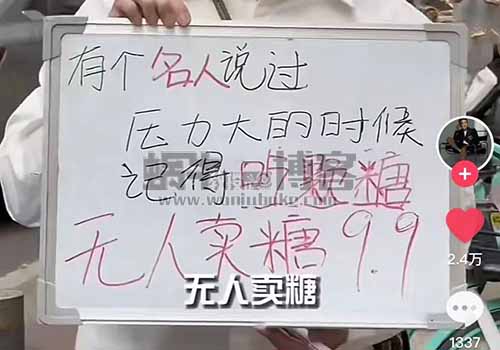 有个名人说过
压力大的时候
记得吃颗糖
www.waniubuke.com
无人卖糖 9.9
无人卖糖
2.4万
1337